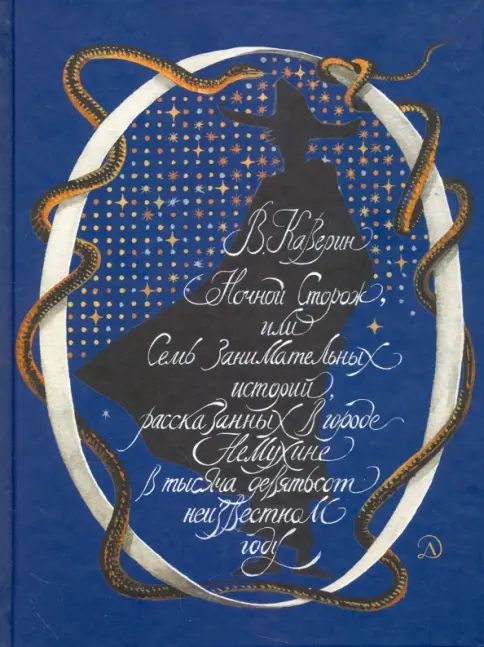 В. Каверин
Ночной Сторож,
или
Семь занимательных
историй,
рассказанных в городе
Немухине
в тысяча девятьсот
неизвестном
году
Д